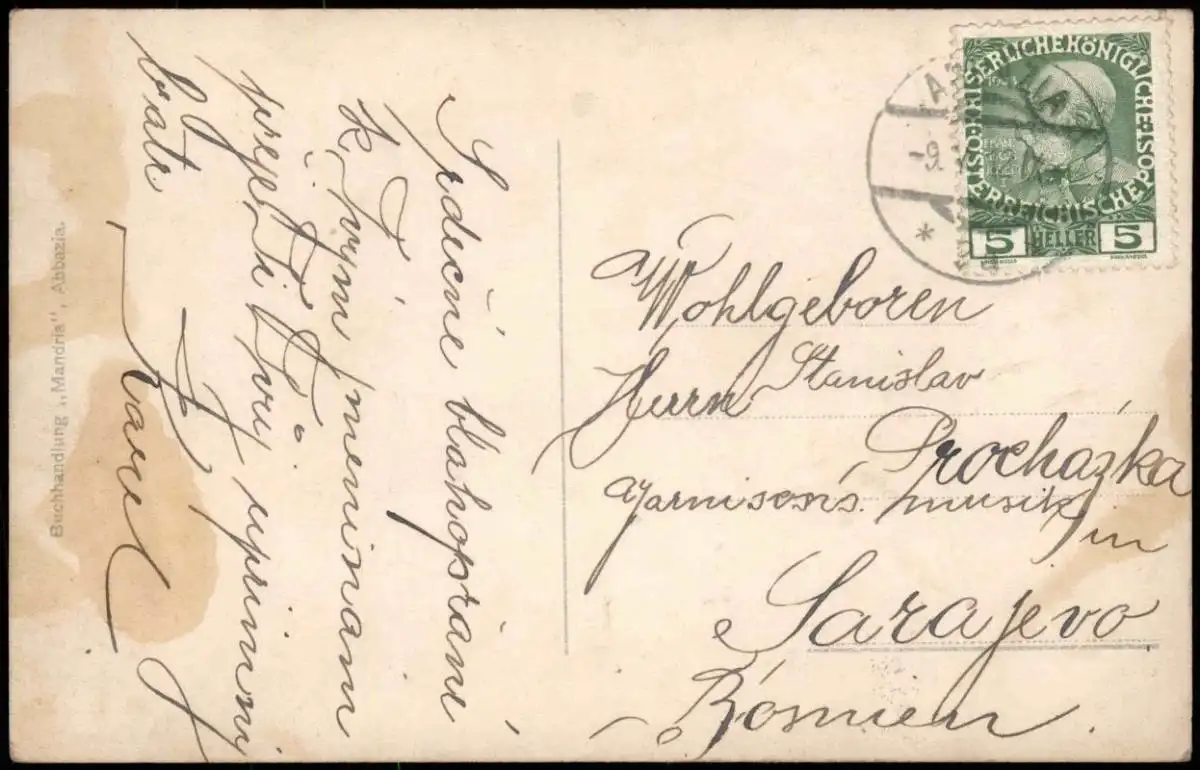 Srdečné blahopřání
k Tvým jmeninám
přeje Ti Tvůj upřimný
bratr
Karel
Buchhandlung „Mandria", Abbazia.
KAISERLICHE KÖNIGLICHE
ÖSTERREICHISCHE POST
5 HELLER 5
-9.
Wohlgeboren
Herrn Stanislav
Procházka
Garnisons. musik
in
Sarajevo
Bosnien.